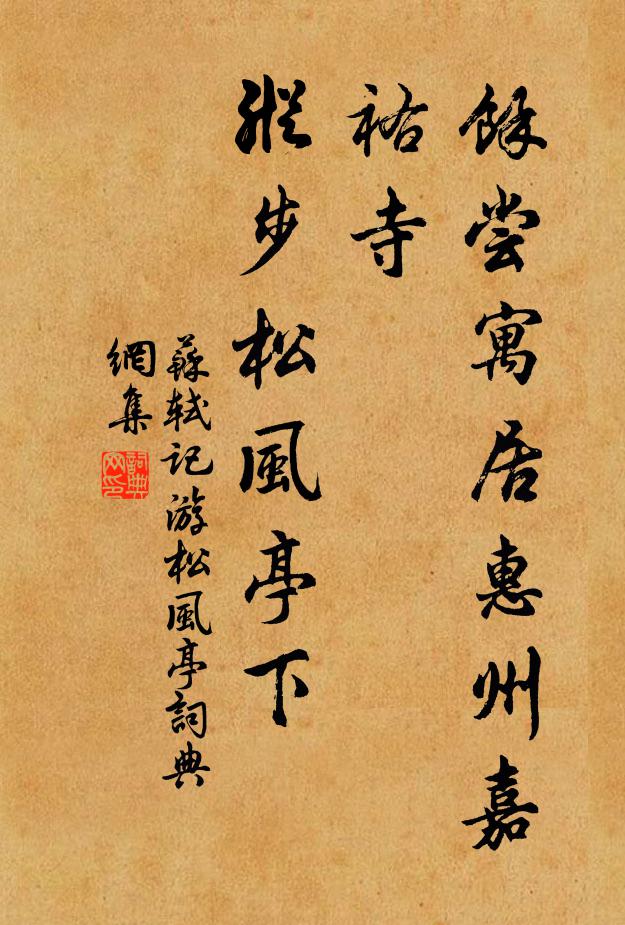 餘嘗寓居惠州嘉
祐寺
縱步松風亭下
蘇軾記游松風亭詞典
網集
詞典
网印